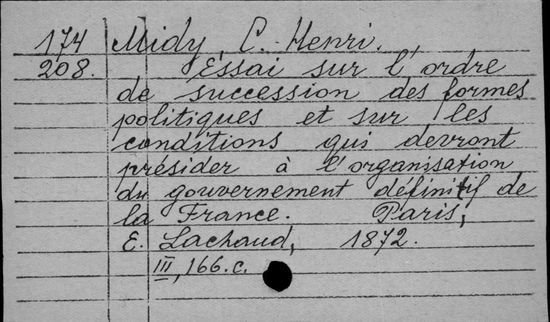 174 Midy, C. Henri.
208. Essai sur l'ordre
de succession des formes
politiques et sur les
conditions qui devront
présider à l'organisation
du gouvernement définitif de
la France. Paris,
E. Lachaud, 1872.
III, 166. c.